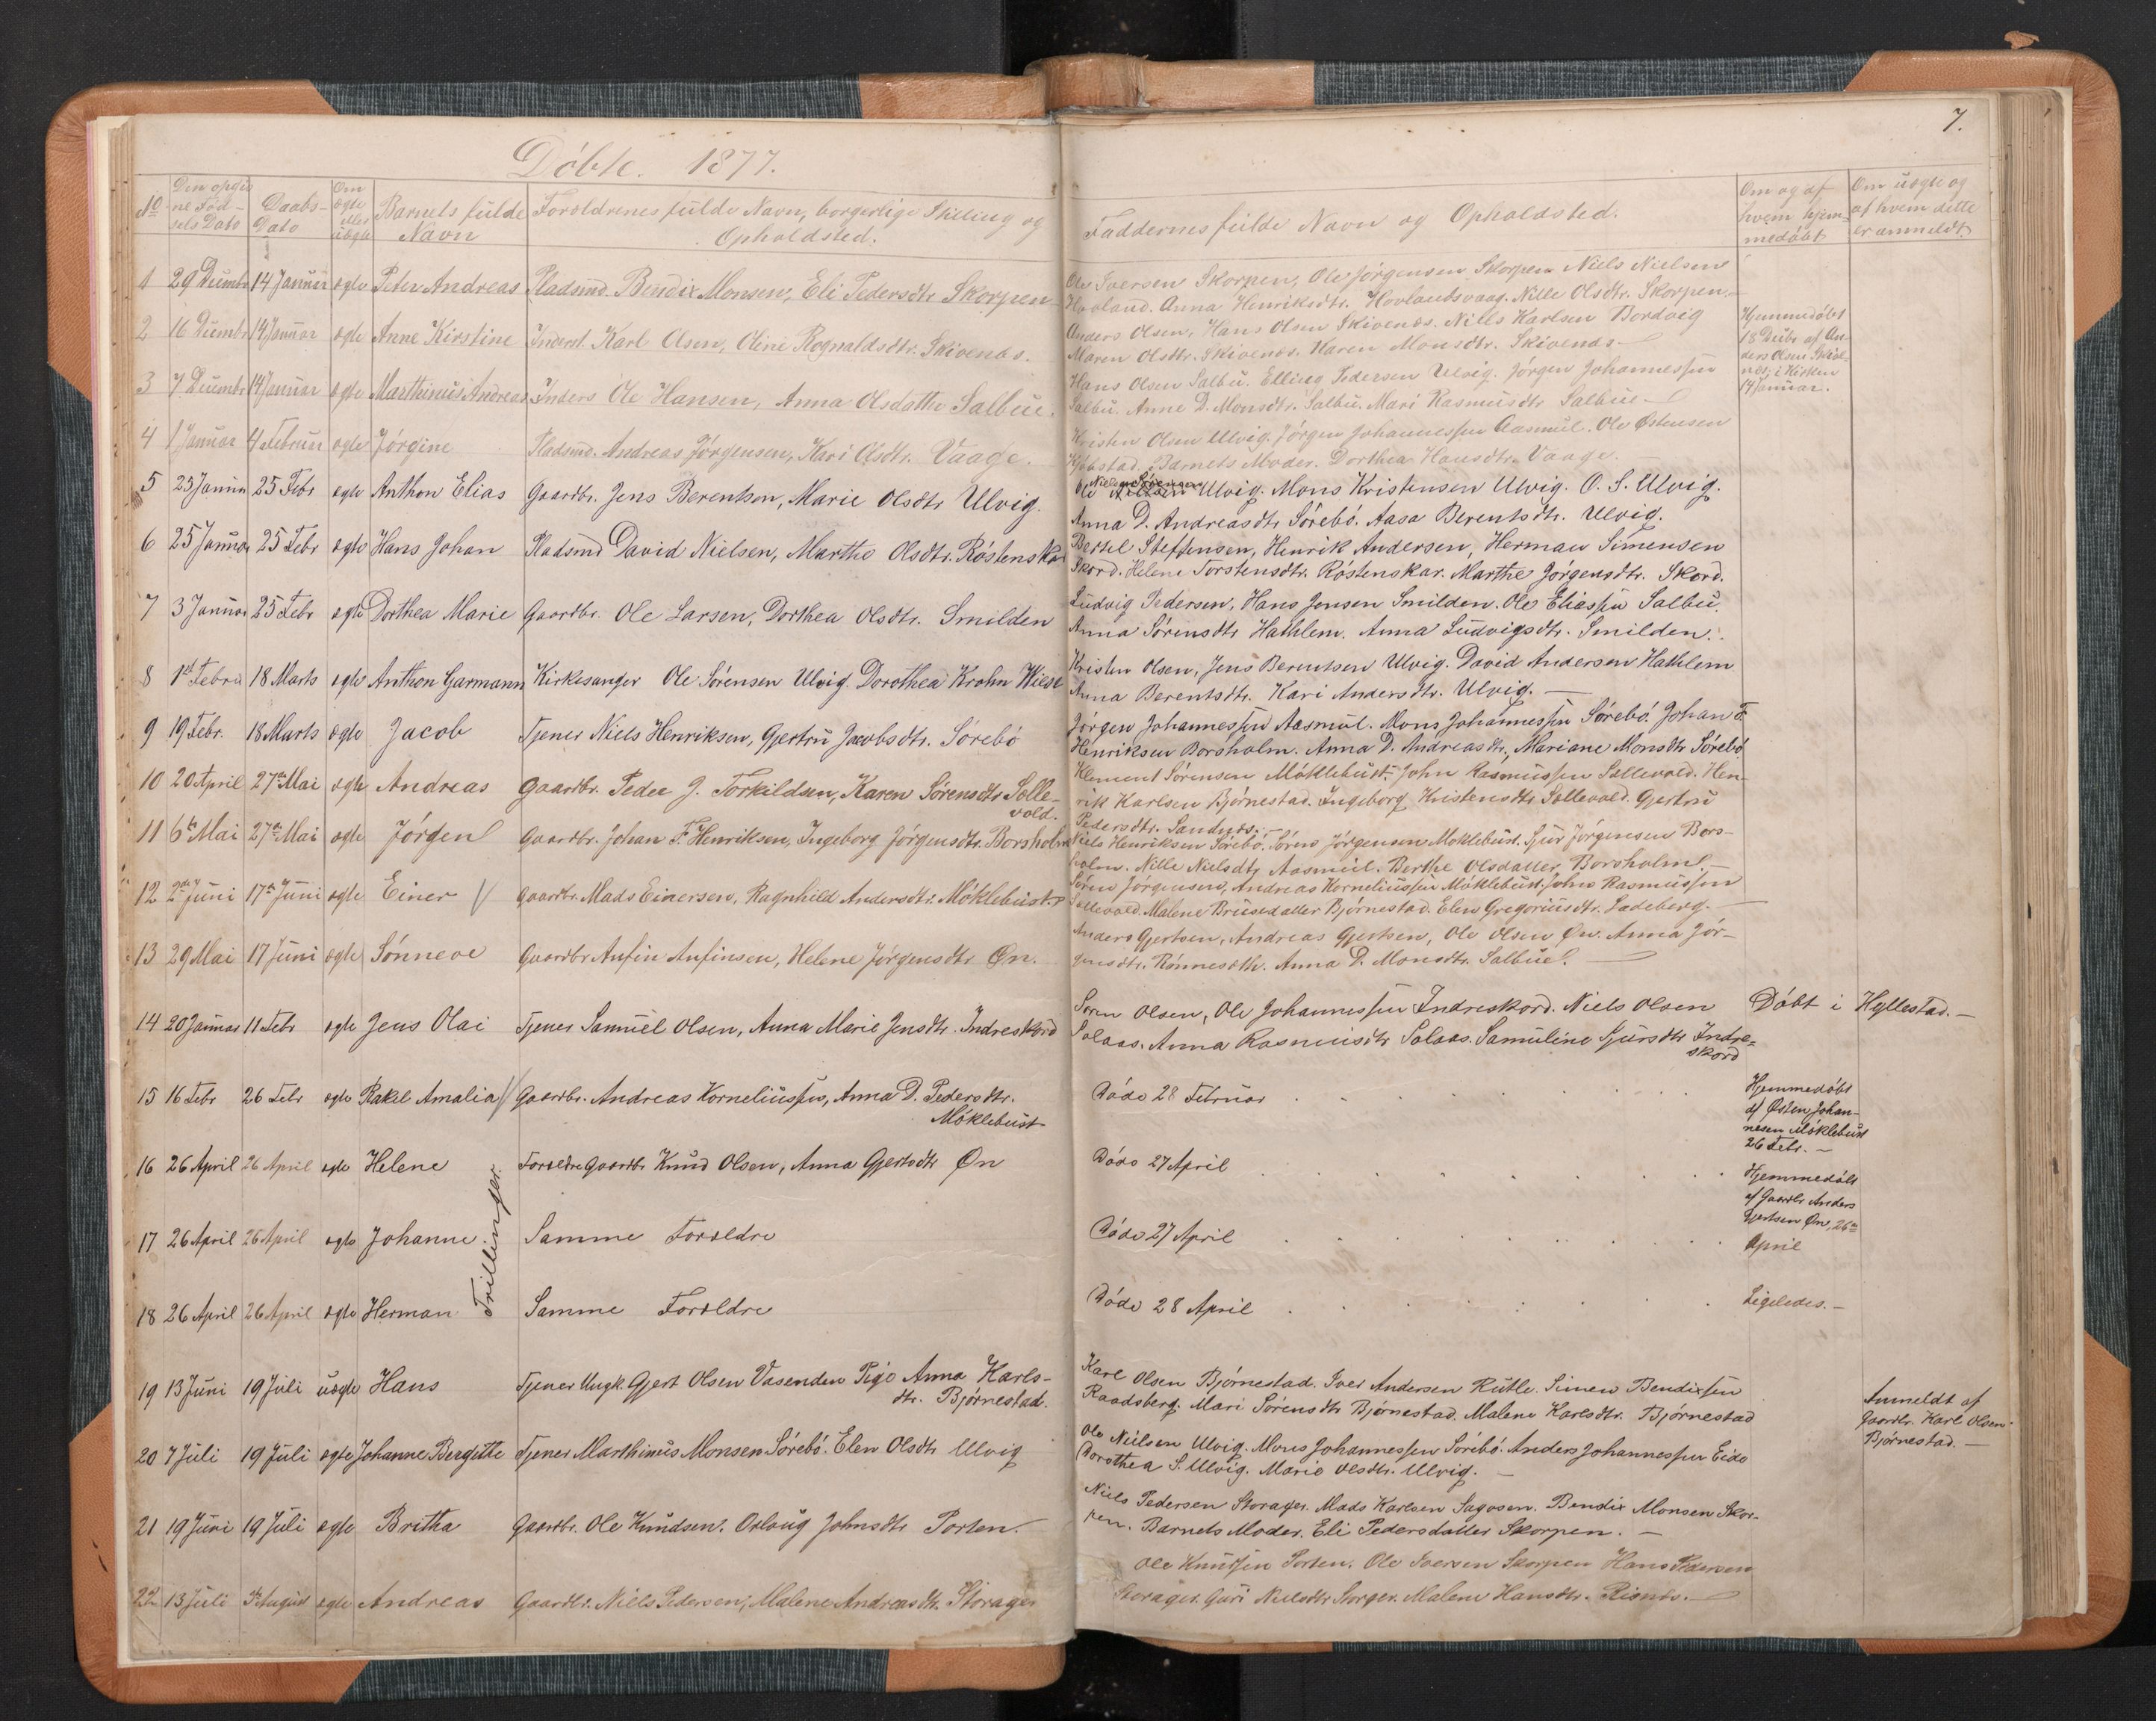 7.
Döbte. 1877.
No
Den opgiv
ne Föd-
sels Dato
Daabs-
Dato
Om
ægte
eller
uægte
Barnets fulde
Navn
Forældrenes fulde Navn, borgerlige Stilling og
Opholdsted.
Faddernes fulde Navn og Opholdsted.
Om og af
hvem hjem-
medöbt
Om uægte og
af hvem dette
er anmeldt.
1 29 Decembr 14 Januar ægte Peter Andreas Pladsmd. Bendix Monsen, Eli Pedersdtr. Skorpen
Ole Iversen Skorpen, Ole Jörgensen Skorpen Niels Nielsen
Hovland. Anna Henriksdtr. Hovlandsvaag. Nille Olsdtr. Skorpen.
2 16 Decembr 14 Januar ægte Anne Kirstine Inderst. Karl Olsen, Oline Rognaldsdtr. Skivenes.
Anders Olsen, Hans Olsen Skivenes. Nills Karlsen Bordvig
Maren Olsdtr. Skivenes. Karen Monsdtr. Skivenes
Hjemmedöbt
18 Decbr af An-
ders Olsen Skive-
nes; i Kirken
14 Januar.
3 7 Decembr 14 Januar ægte Marthinus Andreas Inders Ole Hansen, Anna Olsdatter Salbue.
Hans Olsen Salbu. Elling Pedersen Ulvig. Jörgen Johannessen
Salbu. Anne D. Monsdtr. Salbu. Mari Rasmusdtr Salbue
4 1 Januar 4 Februar ægte Jörgine Pladsmd. Andreas Jörgensen, Kari Olsdtr. Vaage.
Kristen Olsen Ulvig. Jörgen Johannessen Aasmul. Ole Östensen
Barnets Moder. Dorthea Hansdtr. Vaage.
5 25 Januar 25 Febr ægte Anthon Elias Gaardbr. Jens Berentsen, Marie Olsdtr Ulvig.
Ole Nielsen Ulvig. Mons Kristensen Ulvig. O. S. Ulvig.
Anna D. Andreasdtr Sörebö. Aasa Berentsdtr. Ulvig.
6 25 Januar 25 Febr ægte Hans Johan Pladsmd David Nielsen, Marthe Olsdtr. Röstenskar
Bertel Steffensen, Henrik Andersen, Herman Simensen
Skord. Helene Torstensdtr. Röstenskar. Marthe Jörgensdtr. Skord.
7 3 Januar 25 Febr ægte Dorthea Marie Gaardbr. Ole Larsen, Dorthea Olsdtr. Smilden
Ludvig Pedersen, Hans Jensen Smilden. Ole Eliassen Salbu.
Anna Sörensdtr Hathlem. Anna Ludvigsdtr. Smilden.
8 1st Febru 18 Marts ægte Anthon Garmann Kirkesanger Ole Sörensen Ulvig. Dorothea Krohn Wiese
Kristen Olsen, Jens Berentsen Ulvig. David Andersen Hathlem
Anna Berentsdtr. Kari Andersdtr. Ulvig.
9 19 Febr. 18 Marts ægte Jacob Tjener Niels Henriksen, Gjertru Jacobsdtr. Sörebö
Jörgen Johannessen Aasmul. Mons Johannessen Sörebö. Johan F.
Henriksen Borsholm. Anna D. Andreasdtr, Mariane Monsdtr Sörebö
10 20 April 27de Mai ægte Andreas Gaardbr. Peder J. Torkildsen, Karen Sörensdtr Solle-
vold.
Klement Sörensen Möklebust. John Rasmussen Sollevold. Hen-
rik Karlsen Björnestad. Ingeborg Kristensdtr Sollevold. Gjertru
Pedersdtr. Sandnes.
11 6te Mai 27de Mai ægte Jörgen Gaardbr. Johan F. Henriksen, Ingeborg Jörgensdtr. Borsholm
Niels Henriksen Sörebö. Sören Jörgensen Möklebust. Sjur Jörgensen Bors-
holm. Nille Nielsdtr Aasmul. Berthe Olsdatter Borsholm.
12 2de Juni 17de Juni ægte Einer // Gaardbr. Mads Einersen, Ragnhild Andersdtr. Möklebust.
Sören Jörgensen, Andreas Korneliussen Möklebust. John Rasmussen
Sollevold. Malene Brusedatter Björnestad. Elen Gregoriusdtr. Ladeberg.
13 29 Mai 17 Juni ægte Sönneve Gaardbr Anfin Anfinsen, Helene Jörgensdtr Øn.
Anders Gjertsen, Andreas Gjertsen, Ole Olsen Øn. Anna Jör-
gensdtr. Anna D. Monsdtr. Salbue.
14 20 Januar 11 Febr ægte Jens Olai Tjener Samuel Olsen, Anna Marie Jensdtr. Indreskord
Sören Olsen, Ole Johannessen Indreskord. Niels Olsen
Solaas. Anna Rasmusdtr Solaas. Samuline Sjursdtr Indre-
skord
Döbt i Hyllestad.
15 16 Febr 26 Febr ægte Rakel Amalia // Gaardbr. Andreas Korneliussen, Anna D. Pedersdtr.
Möklebust
Döde 28 Februar
Hjemmedöbt
af Østen Johan-
nesen Möklebust
26 Febr.
16 26 April 26 April ægte Helene Forældre Gaardbr Knud Olsen, Anna Gjertsdtr Øn
Döde 27 April
Hjemmedöbt
af Gaardbr Anders
Gjertsen Øn, 26de
April
Trillinger.
17 26 April 26 April ægte Johanne Samme Forældre
Döde 27 April
18 26 April 26 April ægte Herman Samme Forældre
Döde 28 April
Ligeledes.
19 13 Juni 19 Juli uægte Hans Tjener Ungk. Gjert Olsen Vasenden Pige Anna Karls-
dtr. Björnestad.
Karl Olsen Björnestad. Iver Andersen Rutle. Simen Bendixsen
Raadsberg. Mari Sörensdtr Björnestad. Malene Karlsdtr. Björnestad
Anmeldt af
Gaardbr. Karl Olsen
Björnestad.
20 7 Juli 19 Juli ægte Johanne Bergitte Tjener Marthinus Monsen Sörebö. Elen Olsdtr Ulvig
Ole Nielsen Ulvig. Mons Johannessen Sörebö. Anders Johannessen Eide
Dorothea S. Ulvig. Marie Olsdtr. Ulvig.
21 19 Juni 19 Juli ægte Britha Gaardbr. Ole Knudsen. Oslaug Johnsdtr Porten.
Niels Pedersen Storager. Mads Karlsen Sagosen. Bendix Monsen Skor-
pen. Barnets Moder. Eli Pedersdatter Skorpen.
22 13 Juli August ægte Andreas Gaardbr. Niels Pedersen, Malene Andreasdtr. Storager
Ole Knudsen Porten. Ole Iversen Skorpen Hans Pedersen
Storager. Guri Nielsdtr Storger. Malene Hansdtr. Risnes.